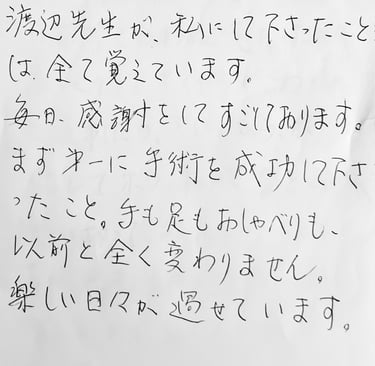 渡辺先生が、私にして下さったこと
は、全て覚えています。
毎日、感謝をしてすごしております。
まず第一に手術を成功して下さ
ったこと。手も足もおしゃべりも、
以前と全く変わりません。
楽しい日々が過せています。